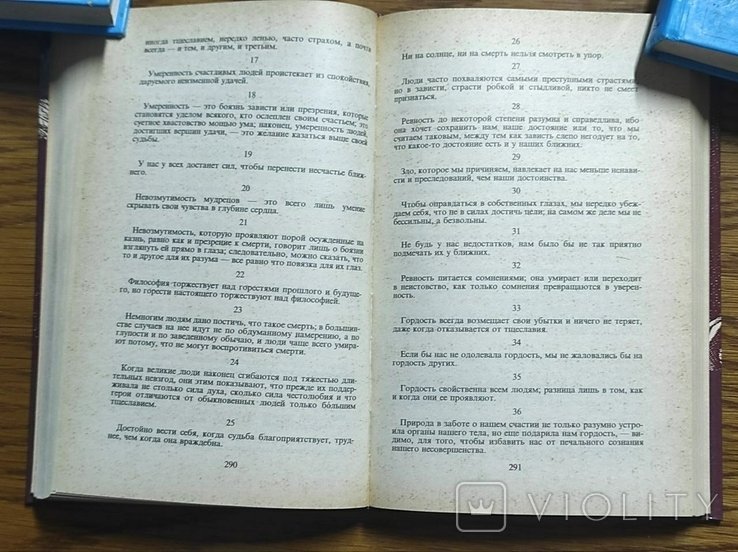 иногда тщеславием, нередко ленью, часто страхом, а почти
всегда — и тем, и другим, и третьим.
17
Умеренность счастливых людей проистекает из спокойствия,
даруемого неизменной удачей.
18
Умеренность — это боязнь зависти или презрения, которые
становятся уделом всякого, кто ослеплен своим счастьем; это
суетное хвастовство мощью ума; наконец, умеренность людей,
достигших вершин удачи, — это желание казаться выше своей
судьбы.
19
У нас у всех достанет сил, чтобы перенести несчастье ближ-
него.
20
Невозмутимость мудрецов — это всего лишь умение
скрывать свои чувства в глубине сердца.
21
Невозмутимость, которую проявляют порой осужденные на
казнь, равно как и презрение к смерти, говорит лишь о боязни
взглянуть ей прямо в глаза; следовательно, можно сказать, что
то и другое для их разума — все равно что повязка для их глаз.
22
Философия торжествует над горестями прошлого и будуще-
го, но горести настоящего торжествуют над философией.
23
Немногим людям дано постичь, что такое смерть; в большин-
стве случаев на нее идут не по обдуманному намерению, а по
глупости и по заведенному обычаю, и люди чаще всего умира-
ют потому, что не могут воспротивиться смерти.
24
Когда великие люди наконец сгибаются под тяжестью дли-
тельных невзгод, они этим показывают, что прежде их поддер-
живала не столько сила духа, сколько сила честолюбия и что
герои отличаются от обыкновенных людей только бо́льшим
тщеславием.
25
Достойно вести себя, когда судьба благоприятствует, труд-
нее, чем когда она враждебна.
290
26
Ни на солнце, ни на смерть нельзя смотреть в упор.
27
Люди часто похваляются самыми преступными страстями,
но в зависти, страсти робкой и стыдливой, никто не смеет
признаться.
28
Ревность до некоторой степени разумна и справедлива, ибо
она хочет сохранить нам наше достояние или то, что мы
считаем таковым, между тем как зависть слепо негодует на то,
что какое-то достояние есть и у наших ближних.
29
Зло, которое мы причиняем, навлекает на нас меньше ненави-
сти и преследований, чем наши достоинства.
30
Чтобы оправдаться в собственных глазах, мы нередко убеж-
даем себя, что не в силах достичь цели; на самом же деле мы не
бессильны, а безвольны.
31
Не будь у нас недостатков, нам было бы не так приятно
подмечать их у ближних.
32
Ревность питается сомнениями; она умирает или переходит
в неистовство, как только сомнения превращаются в уверен-
ность.
33
Гордость всегда возмещает свои убытки и ничего не теряет,
даже когда отказывается от тщеславия.
34
Если бы нас не одолевала гордость, мы не жаловались бы на
гордость других.
35
Гордость свойственна всем людям; разница лишь в том, как
и когда они ее проявляют.
36
Природа в заботе о нашем счастии не только разумно устро-
ила органы нашего тела, но еще подарила нам гордость, — ви-
димо, для того, чтобы избавить нас от печального сознания
нашего несовершенства.
291
VIOLITY